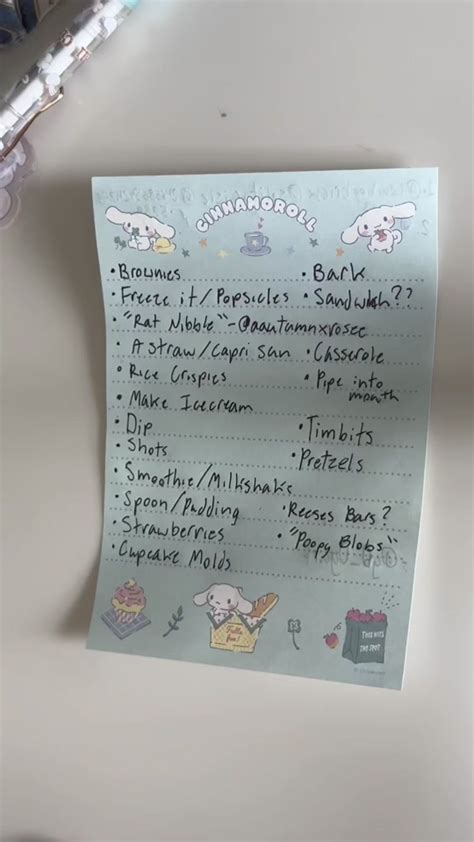 CINNAMOROLL
• Brownies • Bark
• Freeze it/Popsicles • Sandwich??
• "Rat Nibble" - @aautumnxrosee
• A straw/capri sun • Casserole
• Rice Crispies • Pipe into mouth
• Make Icecream
• Dip • Timbits
• Shots • Pretzels
• Smoothie/Milkshake
• Spoon/Pudding • Reeses Bars?
• Strawberries • "Poopy Blobs"
• Cupcake Molds
THIS HITS
THE SPOT